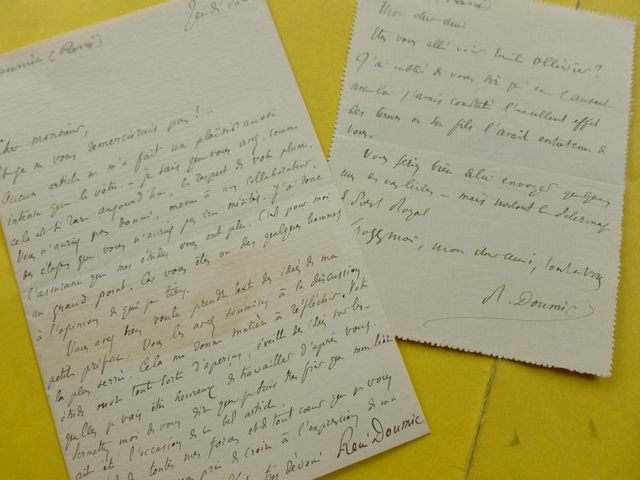 Doumic (René)
Jeudi soir
Cher monsieur,
que je vous remercierais pas !...
Aucun article ne m'a fait un plaisir aussi
intense que le vôtre. Je sais que vous avez, comme
cela est si rare aujourd'hui, le respect de votre plume.
Vous n'auriez pas donné, même à un collaborateur,
des éloges que vous n'auriez pas crus mérités. J'ai donc
l'assurance que mes études vous ont plu. C'est pour moi
un grand point. Car vous êtes un des quelques hommes
à l'opinion de qui je tiens.
Vous avez bien voulu prendre texte des idées de ma
petite préface. Vous les avez soumises à la discussion
la plus serrée. Cela me donne matière à réfléchir. Votre
étude ouvre toute sorte d'aperçus, éveille des idées sur les-
quelles je vais être heureux de travailler d'après vous.
Permettez moi de vous dire que je suis très fier que mon livre
ait été l'occasion de ce bel article.
de toutes mes forces et de tout cœur que je vous
prie de croire à l'expression de ma
très dévoué
René Doumic
(René)
Mon cher ami
Etes vous allé voir Emile Ollivier ?
J'ai oublié de vous dire qu'en causant
avec lui j'avais constaté l'excellent effet
des termes où son fils l'avait entretenu de
vous.
Vous feriez bien de lui envoyer quelques
uns de vos livres – mais surtout le
Port Royal
mon cher ami,
R. Doumic